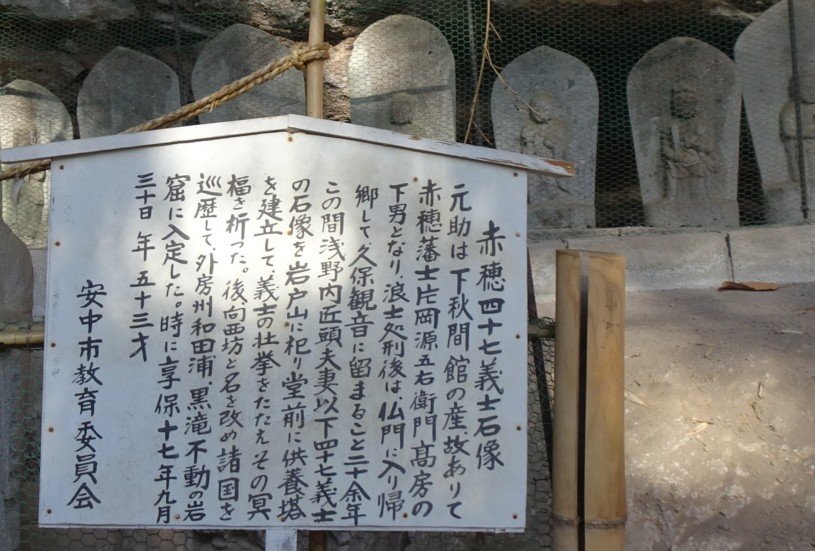 赤穂四十七義士石像
元助は下秋間館の産、故ありて
赤穂藩士片岡源五右衛門高房の
下男となり、浪士処刑後は、仏門に入り帰
郷して久保観音に留まること二十余年
この間浅野内匠頭夫妻以下四十七義士
の石像を岩戸山に祀り堂前に供養塔
を建立して、義士の壮挙をたたえその冥
福を祈った。後向西坊と名を改め諸国を
巡歴して、外房州和田浦、黒滝不動の岩
窟に入定した。時に享保十七年九月
三十日 年 五十三才
安中市教育委員会